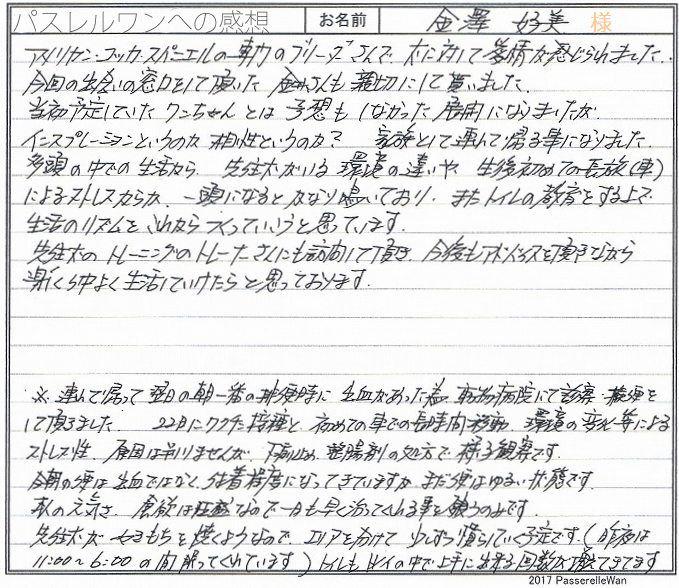 パスレルワンへの感想 お名前 金澤 好美 様
アメリカン・コッカースパニエルの専門のブリーダーさんで、犬に対して愛情が感じられました。
今回の出会いの窓口をして頂いた さんも親切にして貰いました。
当初予定していたワンちゃんとは予想もしなかった展開になりましたが
インスプレーションというのか相性というのか? 家族として連れて帰る事になりました。
多頭の中での生活から、先住犬がいる環境の違いや、生後初めての長旅(車)
によるストレスからか、一頭になるとかなり鳴いており、またトイレの教育をする上で
生活のリズムをこれからつくっていこうと思っています。
先住犬のトレーニングのトレーナーさんにも訪問して頂き、今後もアドバイスを頂きながら
楽しく仲よく生活していけたらと思っております。
※ 連れて帰って翌日の朝一番の排便時に出血があった為、動物病院にて診察・検便を
して頂きました。 22日にワクチン接種と、初めての車での長時間移動、環境の変化等による
ストレス性、原因は判りませんが、下痢止め、整腸剤の処方で様子観察です。
今朝の便は出血ではなく、付着程度になってきていますが、まだ便はゆるい状態です。
本人の元気さ、食欲は旺盛なので一日も早く治ってくれる事を願うのみです。
先住犬がやきもちを焼くようなので、エリアを分けて少しずつ慣らしていく予定です(昨夜は
11:00~6:00の間眠ってくれています)トイレもケイジの中で上手に出来る回数が増えてきてます
2017 PasserelleWan